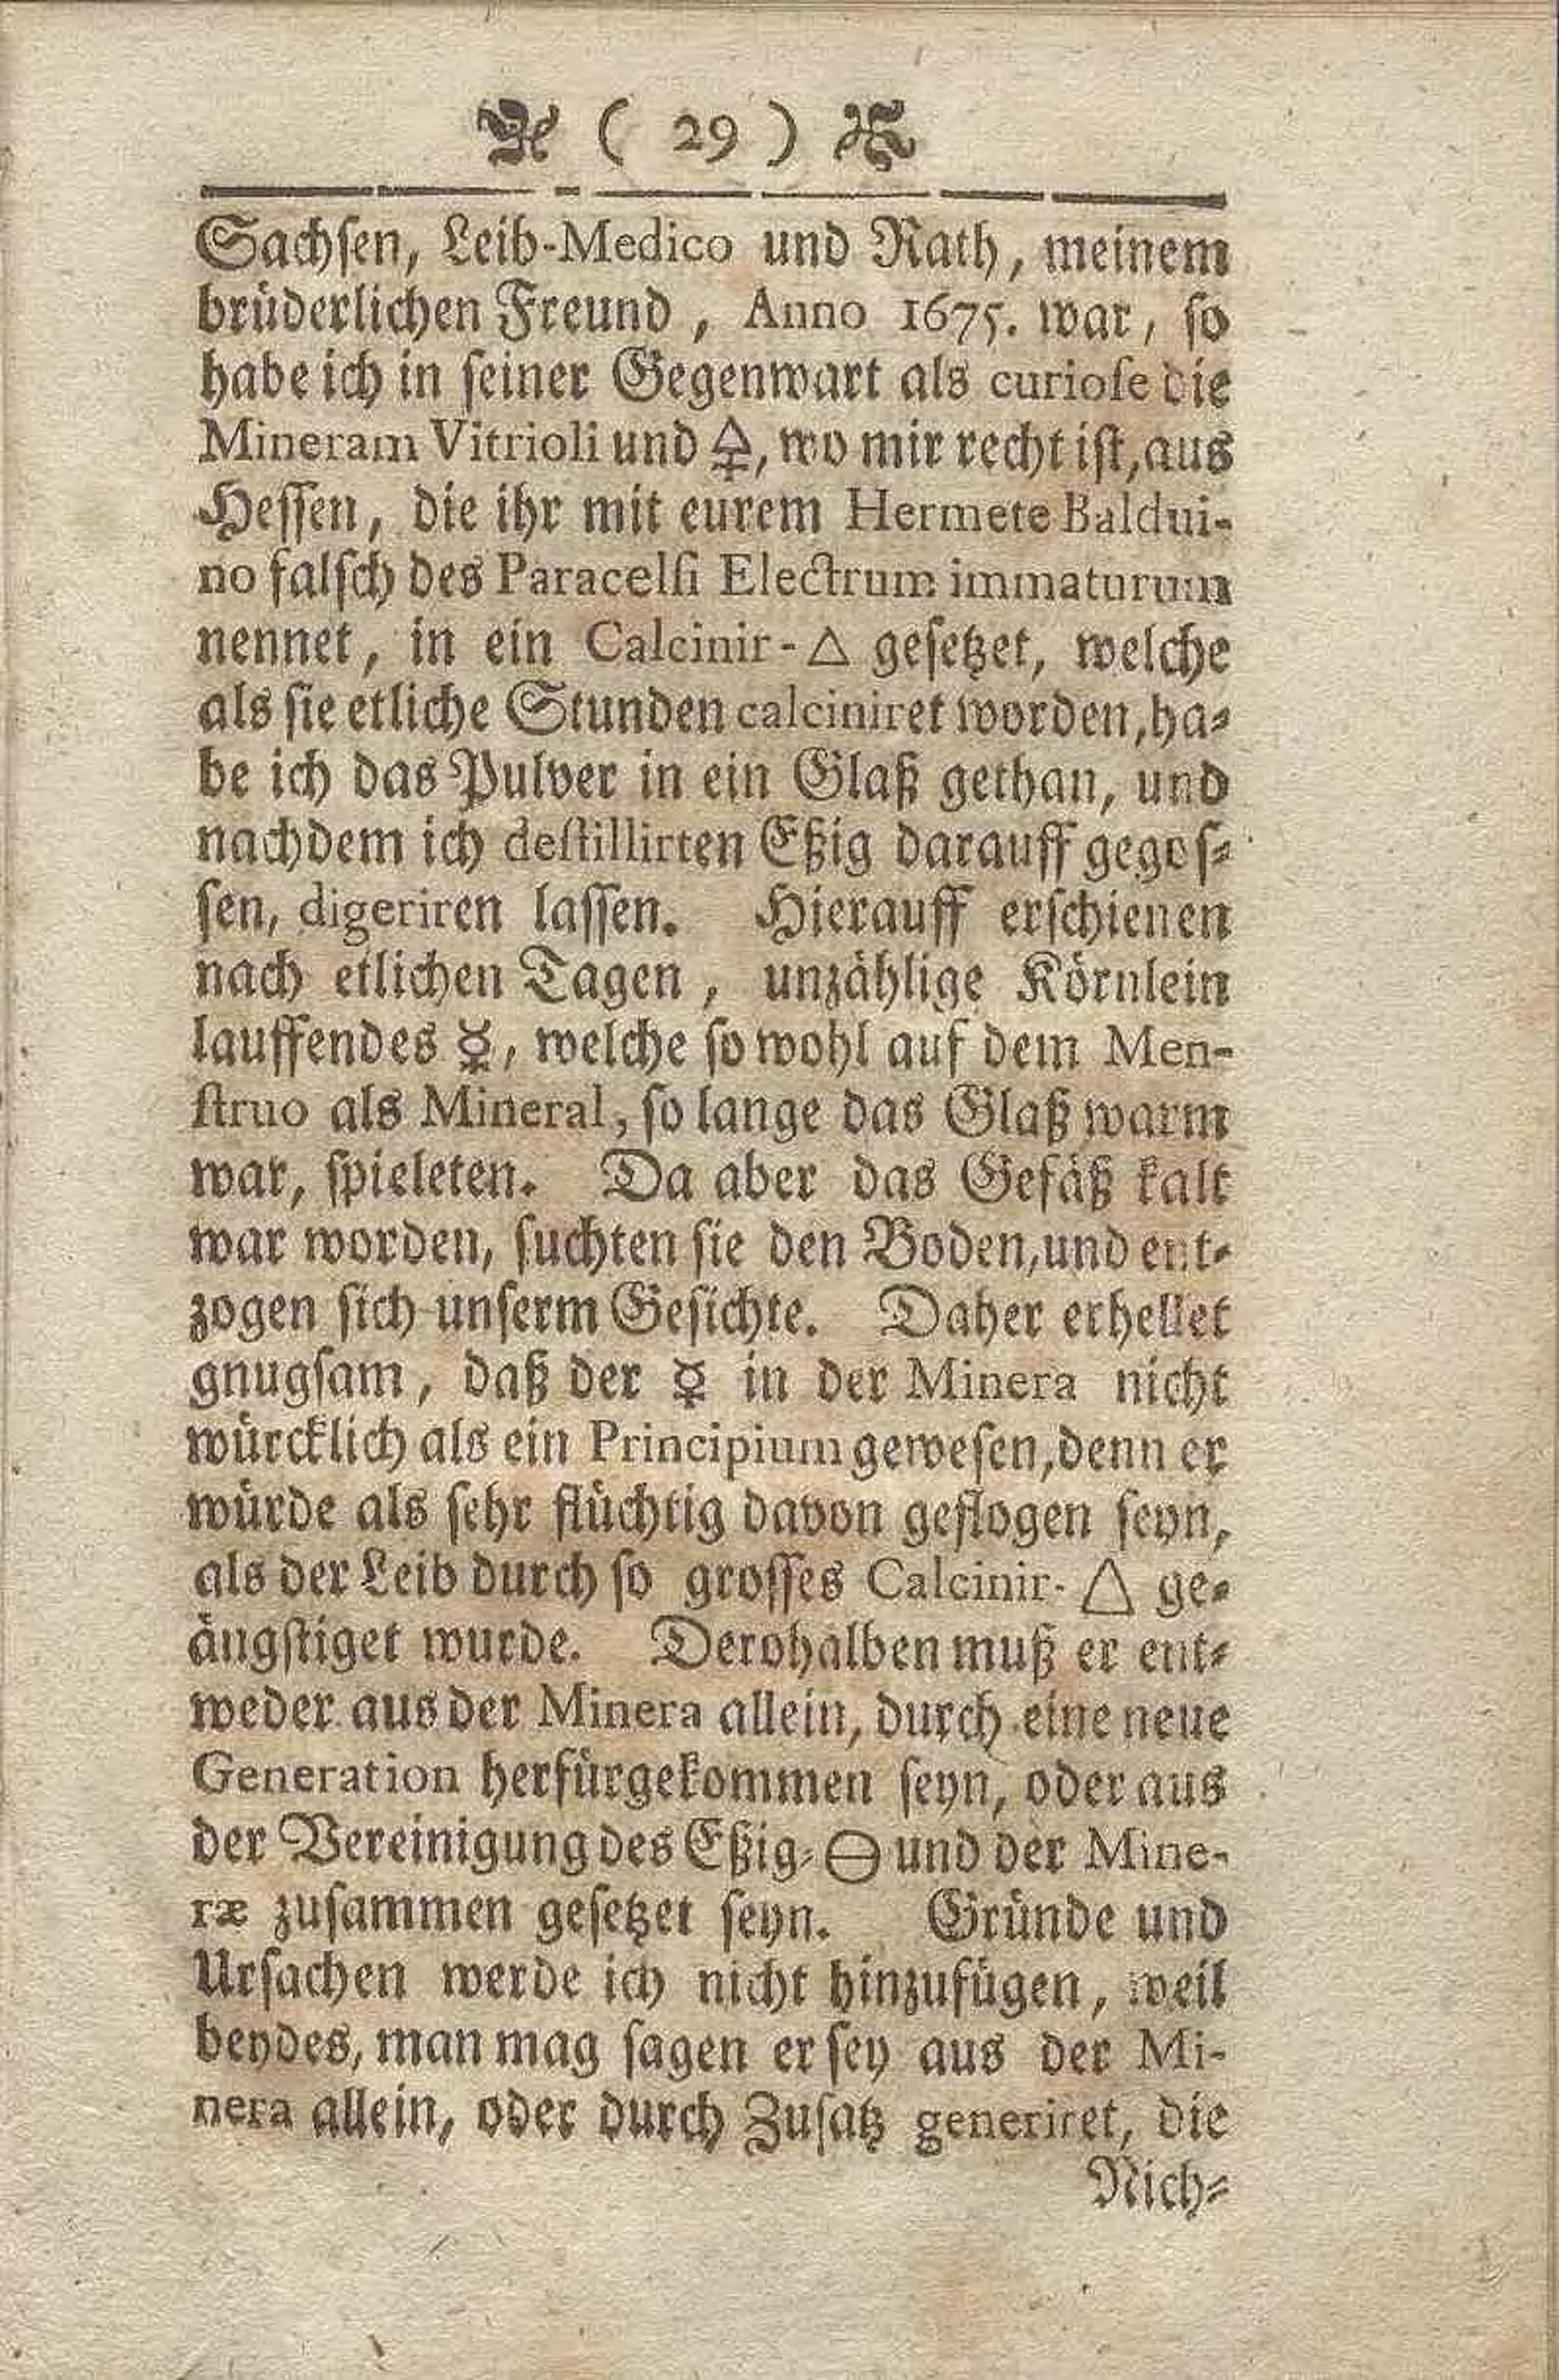 ( 29 )
Sachsen, Leib-Medico und Rath, meinem
brüderlichen Freund, Anno 1675. war, so
habe ich in seiner Gegenwart als curiose die
Mineram Vitrioli und 🜍, wo mir recht ist, aus
Hessen, die ihr mit eurem Hermete Baldui-
no falsch des Paracelsi Electrum immaturum
nennet, in ein Calcinir-△ gesetzet, welche
als sie etliche Stunden calciniret worden, ha-
be ich das Pulver in ein Glaß gethan, und
nachdem ich destillirten Eßig darauff gegos-
sen, digeriren lassen. Hierauff erschienen
nach etlichen Tagen, unzählige Körnlein
lauffendes ☿, welche so wohl auf dem Men-
struo als Mineral, so lange das Glaß warm
war, spieleten. Da aber das Gefäß kalt
war worden, suchten sie den Boden, und ent-
zogen sich unserm Gesichte. Daher erhellet
gnugsam, daß der ☿ in der Minera nicht
würcklich als ein Principium gewesen, denn er
würde als sehr flüchtig davon geflogen seyn,
als der Leib durch so grosses Calcinir-△ ge-
ängstiget wurde. Derohalben muß er ent-
weder aus der Minera allein, durch eine neue
Generation herfürgekommen seyn, oder aus
der Vereinigung des Eßig-🜔 und der Mine-
ræ zusammen gesetzet seyn. Gründe und
Ursachen werde ich nicht hinzufügen, weil
beydes, man mag sagen er sey aus der Mi-
nera allein, oder durch Zusatz generiret, die
Rich-